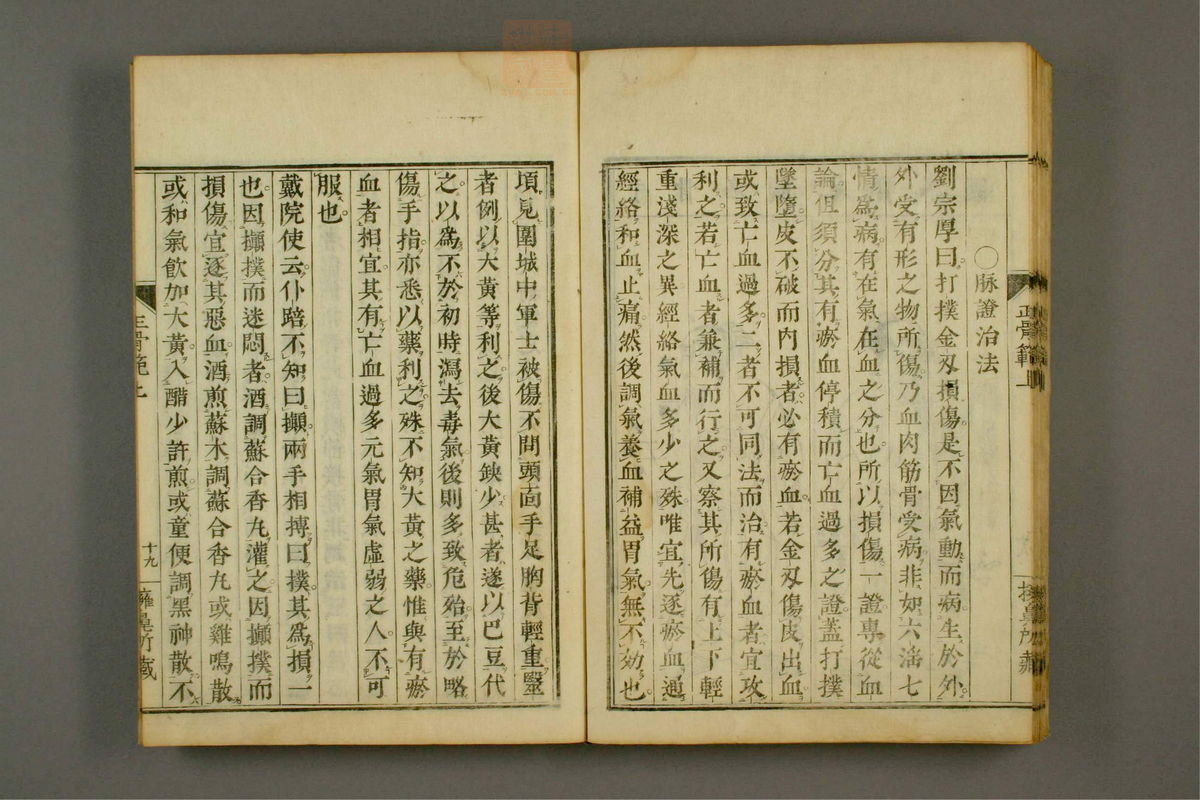 正骨範上
○脉證治法
劉宗厚曰打撲金刄損傷是不因氣動而病生於外
外受有形之物所傷乃血肉筋骨受病非如六淫七
情爲病有在氣在血之分也所以損傷一證專從血
論但須分其有瘀血停積而亡血過多之證盖打撲
墜墮皮不破而内損者必有瘀血若金刄傷皮出血
或致亡血過多二者不可同法而治有瘀血者宜攻
利之若亡血者兼補而行之又察其所傷有上下輕
重淺深之異經絡氣血多少之殊唯宜先逐瘀血通
經絡和血止痛然後調氣養血補益胃氣無不効也
頃見圍城中軍士被傷不問頭面手足胸背輕重毉
者例以大黄等利之後大黄鈌少甚者遂以巴豆代
之以爲不於初時瀉去毒氣後則多致危殆至於略
傷手指亦悉以藥利之殊不知大黄之藥惟與有瘀
血者相宜其有亡血過多元氣胃氣虚弱之人不可
服也
戴院使云仆踣不知曰攧兩手相搏曰撲其爲損一
也因攧撲而迷悶者酒調蘇合香丸灌之因攧撲而
損傷宜逐其惡血酒煎蘇木調蘇合香丸或雞鳴散
或和氣飲加大黄入醋少許煎或童便調黑神散不
十九